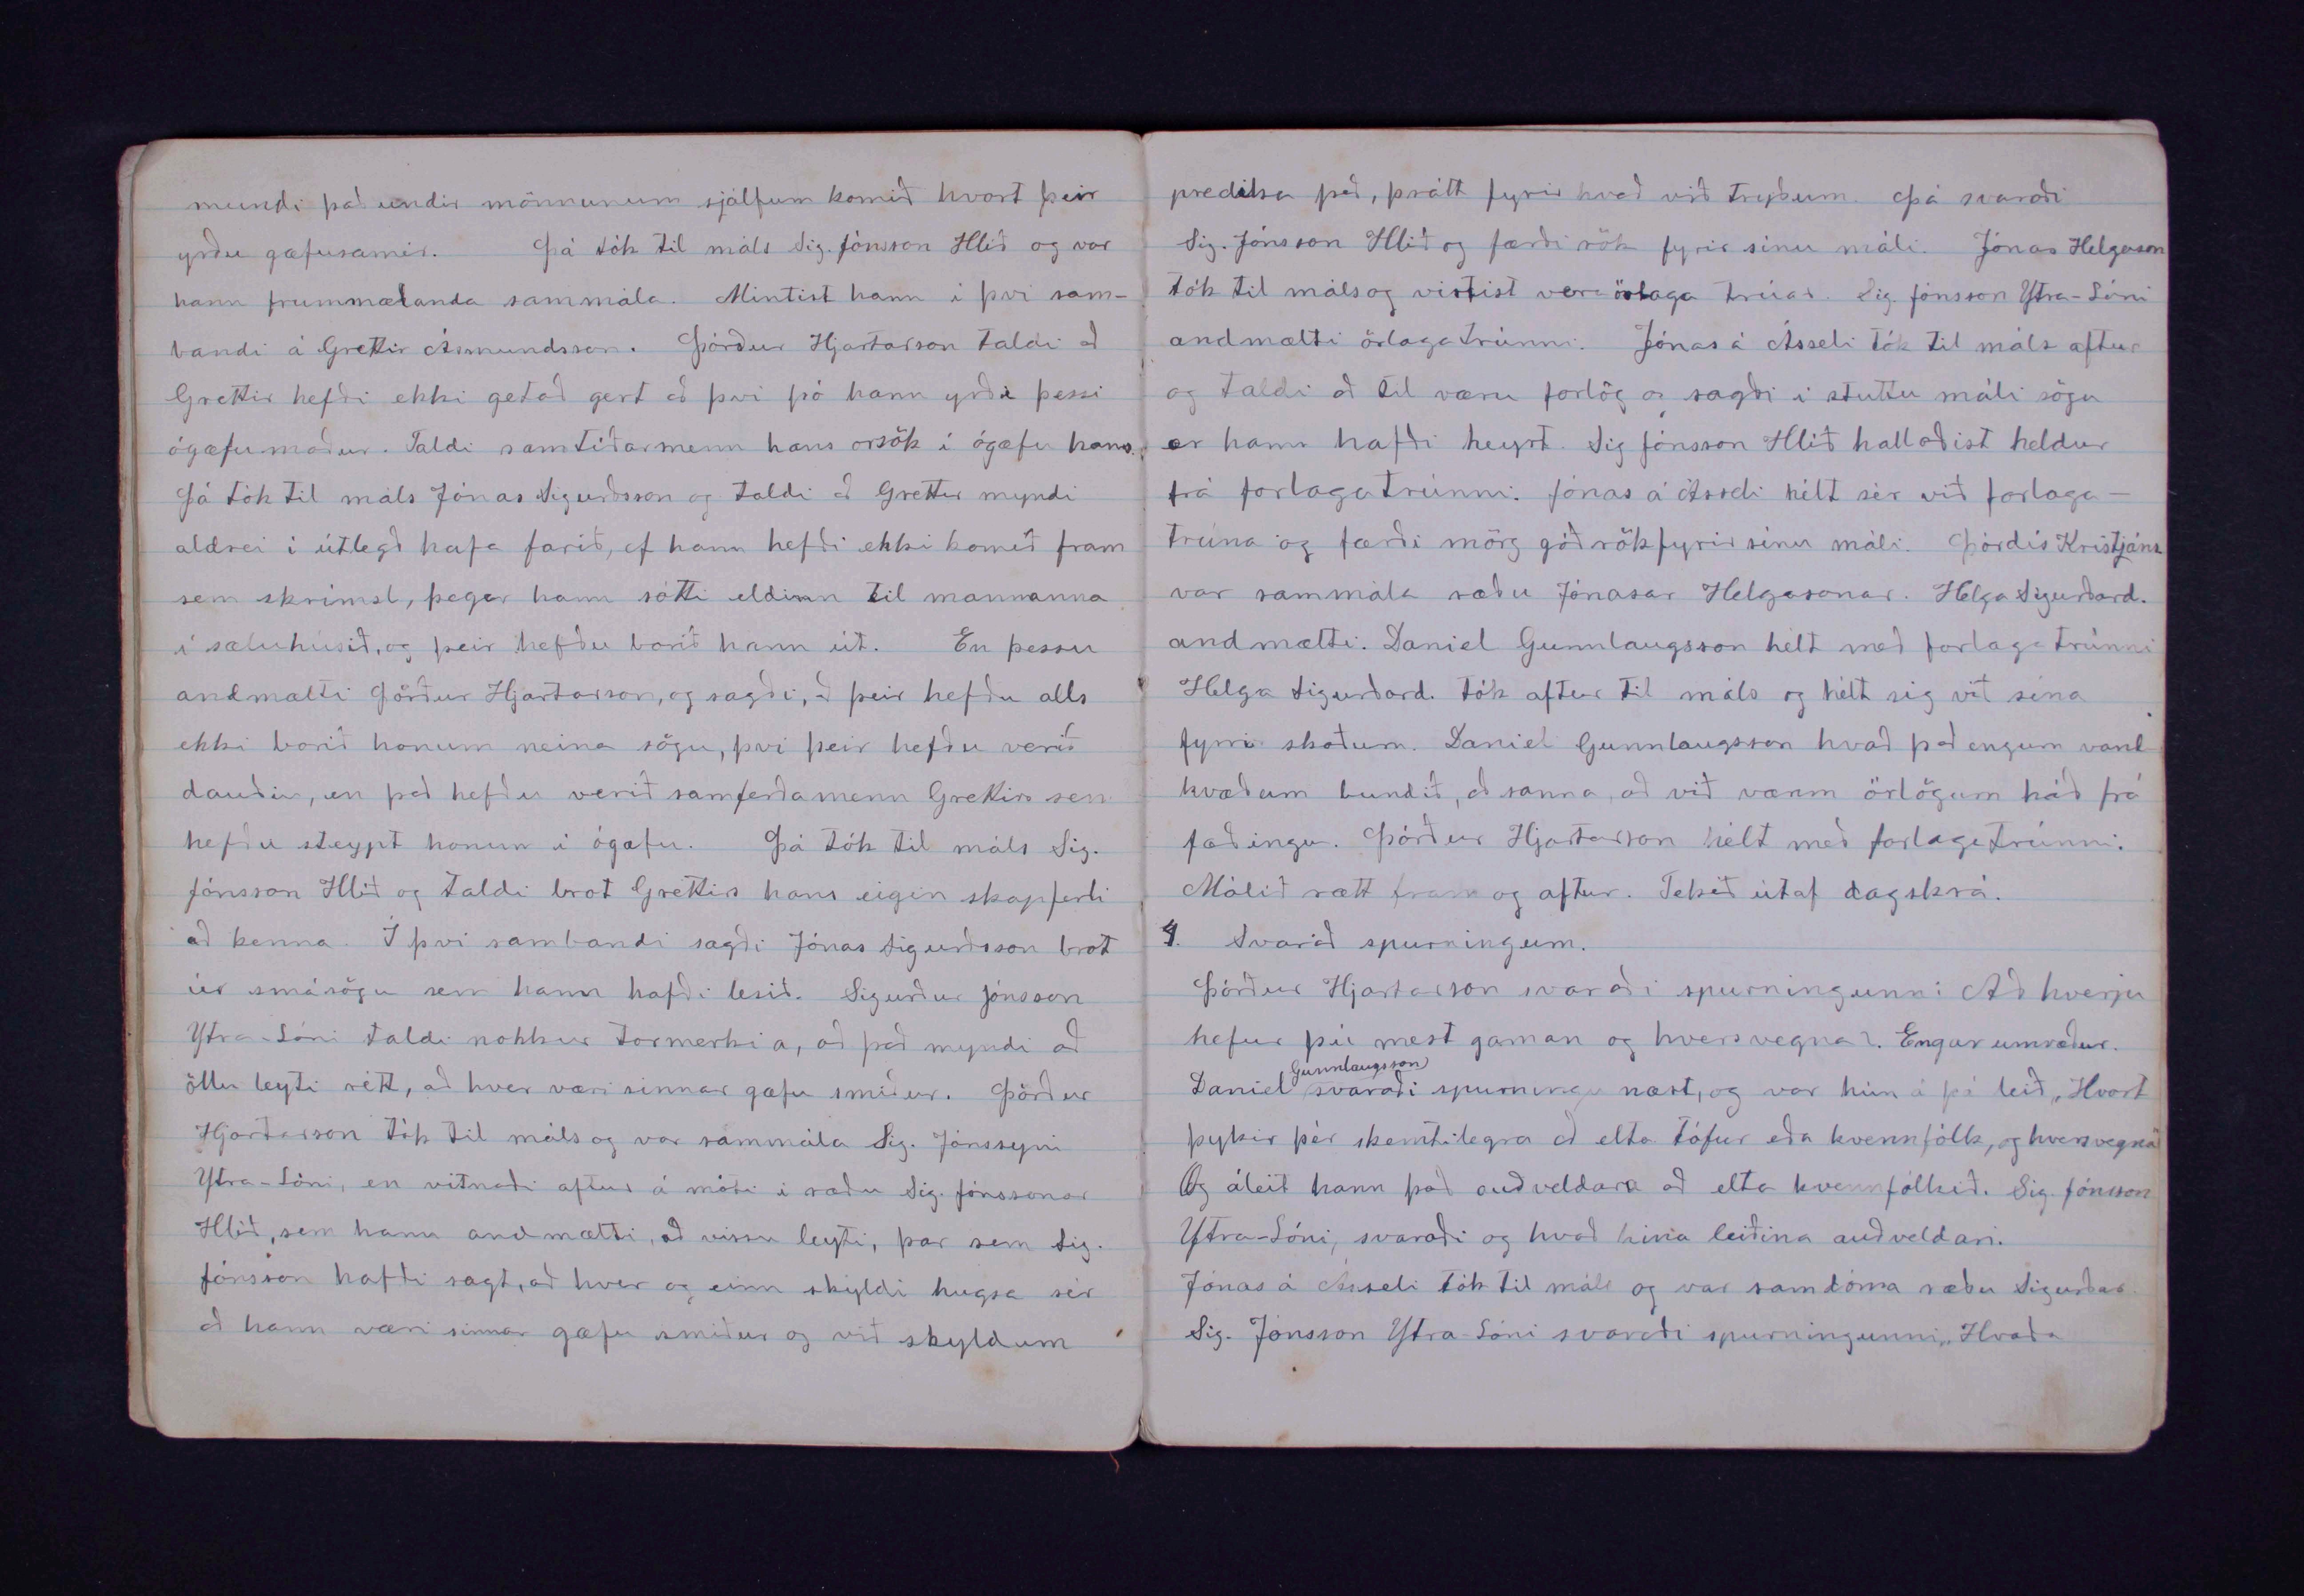 mundi það undir mönnunum sjálfum komið hvort þeir
yrðu gæfusamir. Þá tók til máls Sig. Jónsson Hlíð og var
hann frummælanda sammála. Mintist hann í því sam-
bandi á Grettir Ásmundsson. Þórður Hjartarson taldi að
Grettir hefði ekki getað gert að því þó hann yrði þessi
ógæfumaður. Taldi samtíðarmenn hans orsök í ógæfu hans.
Þá tók til máls Jónas Sigurðsson og taldi að Grettir myndi
aldrei í útlegð hafa farið, ef hann hefði ekki komið fram
sem skrímsl, þegar hann sótti eldinn til mannanna
í sæluhúsið, og þeir hefðu borið hann út. En þessu
andmælti Þórður Hjartarson, og sagði, að þeir hefðu alls
ekki borið honum neina sögu, því þeir hefðu verið
dauðir, en það hefðu verið samferðamenn Grettirs sem
hefðu steypt honum í ógæfu. Þá tók til máls Sig.
Jónsson Hlíð og taldi brot Grettirs hans eigin skapferli
að kenna. Í því sambandi sagði Jónas Sigurðsson brot
úr smásögu sem hann hafði lesið. Sigurður Jónsson
Ytra-Lóni taldi nokkur tormerki á, að það myndi að
öllu leyti rétt, að hver væri sinnar gæfu smiður. Þórður
Hjartarson tók til máls og var sammála Sig. Jónssyni
Ytra-Lóni, en vitnaði aftur á móti í ræðu Sig. Jónssonar
Hlíð, sem hann andmælti, að vissu leyti, þar sem Sig.
Jónsson hafði sagt, að hver og einn skyldi hugsa sér
að hann væri sinnar gæfu smiður og við skyldum
predika það, þrátt fyrir hvað við tryðum. Þá svaraði
Sig. Jónsson Hlíð og færði rök fyrir sínu máli. Jónas Helgason
tók til máls og virtist vera örlaga trúar. Sig. Jónsson Ytra-Lóni
andmælti örlagatrúnni. Jónas á Ásseli tók til máls aftur
og taldi að til væru forlög og sagði í stuttu máli sögu
er hann hafði heyrt. Sig Jónsson Hlíð hallaðist heldur
frá forlagatrúnni. Jónas á Ásseli hélt sér við forlaga-
trúna og færði mörg góð rök fyrir sínu máli. Þórdís Kristjáns
var sammála ræðu Jónasar Helgasonar. Helga Sigurðard.
andmælti. Daníel Gunnlaugsson hélt með forlagatrúnni
Helga Sigurðard. tók aftur til máls og hélt sig við sína
fyrri skoðum. Daníel Gunnlaugsson kvað það engum vand
kvæðum bundið, að sanna, að við værum örlögum háð frá
fæðingu. Þórður Hjartarson hélt með forlagatrúnni.
Málið rætt fram og aftur. Tekið útaf dagskrá.
4. Svarað spurningum.
Þórður Hjartarson svaraði spurningunni Að hverju
hefur þú mest gaman og hversvegna?. Engar umræður.
Daníel Gunnlaugsson svaraði spurningu næst, og var hún á þá leið, „Hvort
þykir þér skemtilegra að elta tófur eða kvennfólk, og hversvegna"
Og áleit hann það auðveldara að elta kvennfólkið. Sig. Jónsson
Ytra-Lóni, svaraði og kvað hina leiðina auðveldari.
Jónas á Ásseli tók til máls og var samdóma ræðu Sigurðar.
Sig. Jónsson Ytra-Lóni svaraði spurningunni „Hvaða